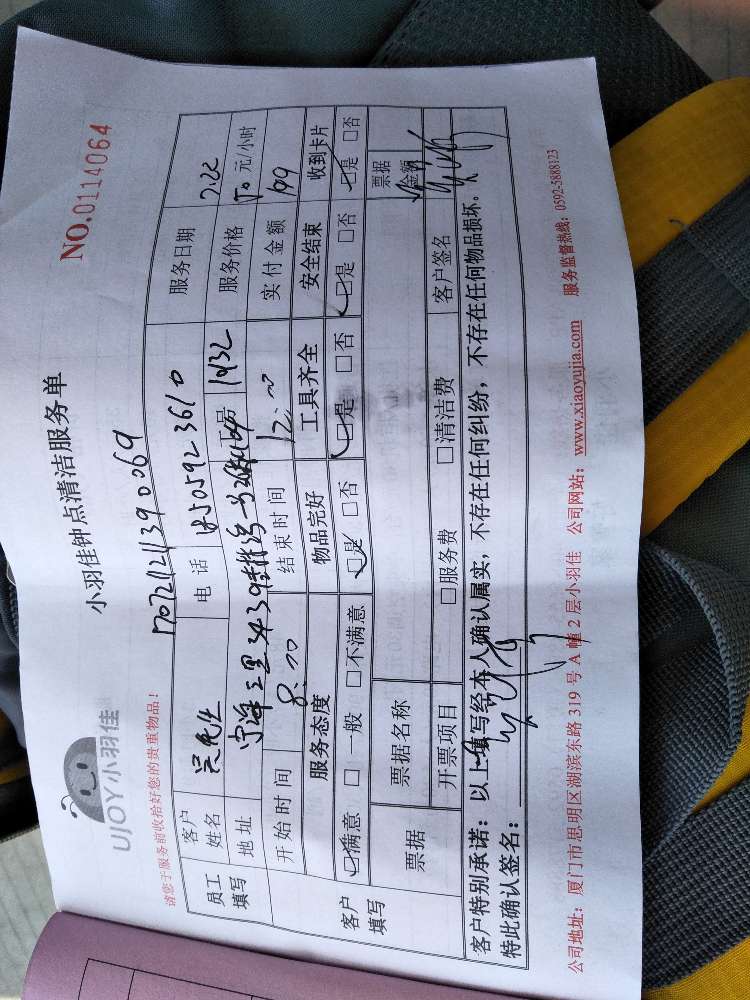 UJOY小羽佳
小羽佳钟点清洁服务单
NO.0114064
请您于服务前收拾好您的贵重物品!
员工填写
客户姓名 吴先生 电话 服务日期 7.22
地址 工号 1932 服务价格 50元/小时
开始时间 8:00 结束时间 12:00 实付金额 199
客户填写
服务态度 物品完好 工具齐全 安全结束 收到卡片
☑满意 □一般 □不满意 ☑是 □否 ☑是 □否 ☑是 □否 ☑是 □否
票据 票据名称 票据金额
开票项目 □服务费 □清洁费 客户签名
客户特别承诺:以上填写经本人确认属实,不存在任何纠纷,不存在任何物品损坏。
特此确认签名:
公司地址:厦门市思明区湖滨东路319号A幢2层小羽佳 公司网站:www.xiaoyujia.com 服务监督热线:0592-5888123